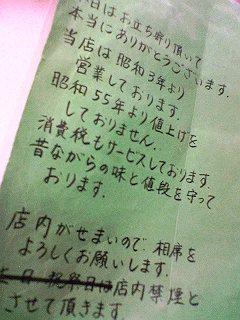 日はお立ち寄り頂いて
本当にありがとうございます.
当店は昭和3年より
営業しております.
昭和55年より値上げを
しておりません.
消費税もサービスしております.
昔ながらの味と値段を守って
おります.
店内がせまいので,相席を
よろしくお願いします.
店内禁煙と
させて頂きます.